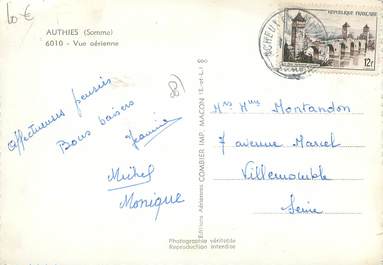 10 €
AUTHIES (Somme)
6010 - Vue aérienne
80
Affectueuses pensées
Bons baisers
Jeannine
Michel
Monique
Éditions Aériennes COMBIER IMP. MACON (S.-et-L.)
Photographie véritable
Reproduction interdite
RÉPUBLIQUE FRANÇAISE
12f
Montandon
7 avenue Marcel
Villemomble
Seine